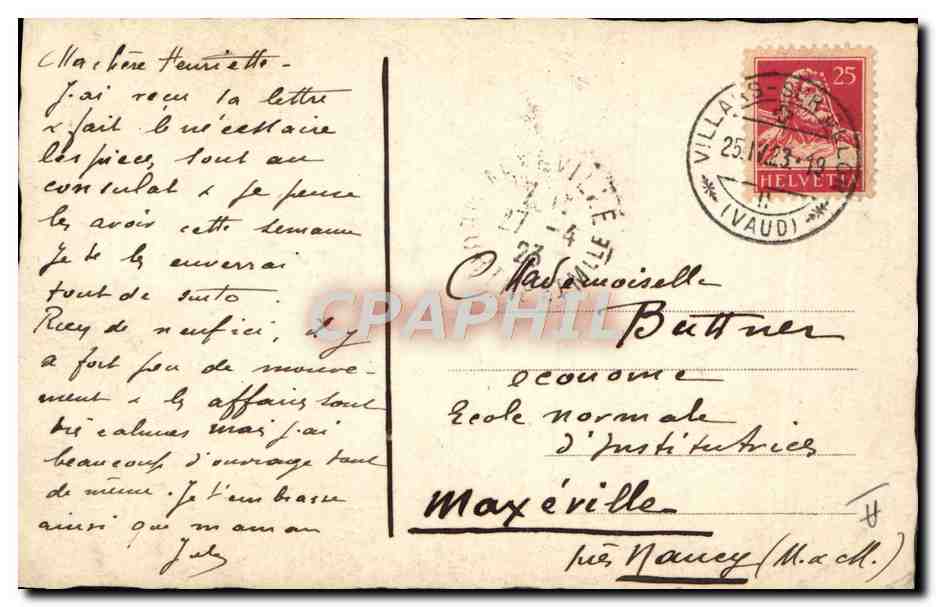 Ma chère Henriette -
J'ai reçu ta lettre
& fait le nécessaire
les pièces sont au
consulat & je pense
les avoir cette semaine
Je te les enverrai
tout de suite.
Rien de neuf ici, il y
a fort peu de mouve-
ment & les affaires sont
très calmes mais j'ai
beaucoup d'ouvrage tout
de même. Je t'embrasse
ainsi que maman
25
HELVETIA
VILLARS-SUR-OLLON
25.IV.23-19
(VAUD)
MAXEVILLE
27 -4
23
CPAPHIL
Mademoiselle
Büttner
économe
Ecole normale
d'Institutrices
Maxéville
près Nancy (M. & M.)